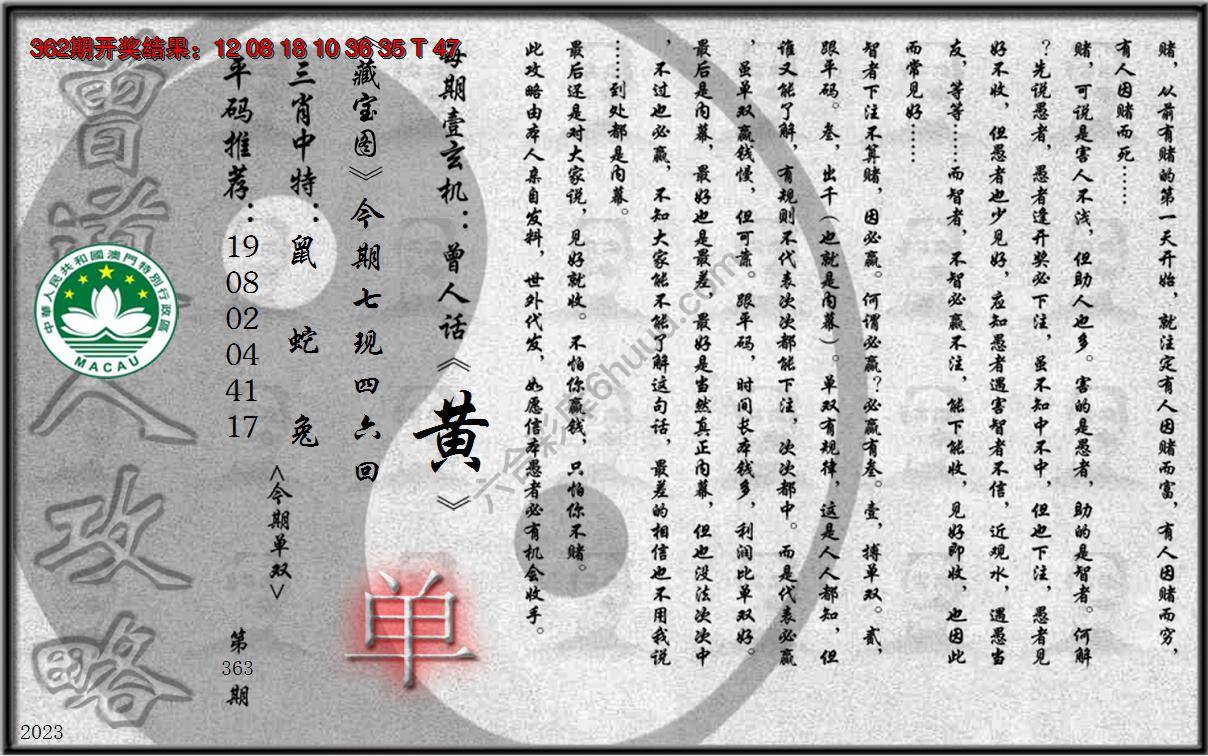 362期开奖结果：12 08 18 10 36 35 T 47
赌，从前有赌的第一天开始，就注定有人因赌而富，有人因赌而穷，
有人因赌而死……
赌，可说是害人不浅，但助人也多。害的是愚者，助的是智者。何解
？先说愚者，愚者逢开奖必下注，虽不知中不中，但也下注，愚者见
好不收，但愚者也少见好，应知愚者遇害智者不信，近观水，遇愚当
友，等等……而智者，不智必赢不注，能下能收，见好即收，也因此
而常见好……
智者下注不算赌，因必赢。何谓必赢？必赢有叁。壹，搏单双。贰，
跟平码。叁，出千（也就是内幕）。单双有规律，这是人人都知，但
谁又能了解，有规则不代表次次都能下注，次次都中。而是代表必赢
，虽单双赢钱慢，但可靠。跟平码，时间长本钱多，利润比单双好。
最后是内幕，最好也是最差，最好是当然真正内幕，但也没法次次中
，不过也必赢，不知大家能不能了解这句话，最差的相信也不用我说
……到处都是内幕。
最后还是对大家说，见好就收。不怕你赢钱，只怕你不赌。
此攻略由本人亲自发料，世外代发，如愿信本愚者必有机会收手。
每期壹玄机：曾人话《黄》
《藏宝图》今期七现四六回
三肖中特：鼠 蛇 兔
平码推荐：19 08 02 04 41 17
<今期单双>
单
第363期
曾道人攻略
中華人民共和國澳門特別行政區
MACAU
六合彩库6huuu.com
2023